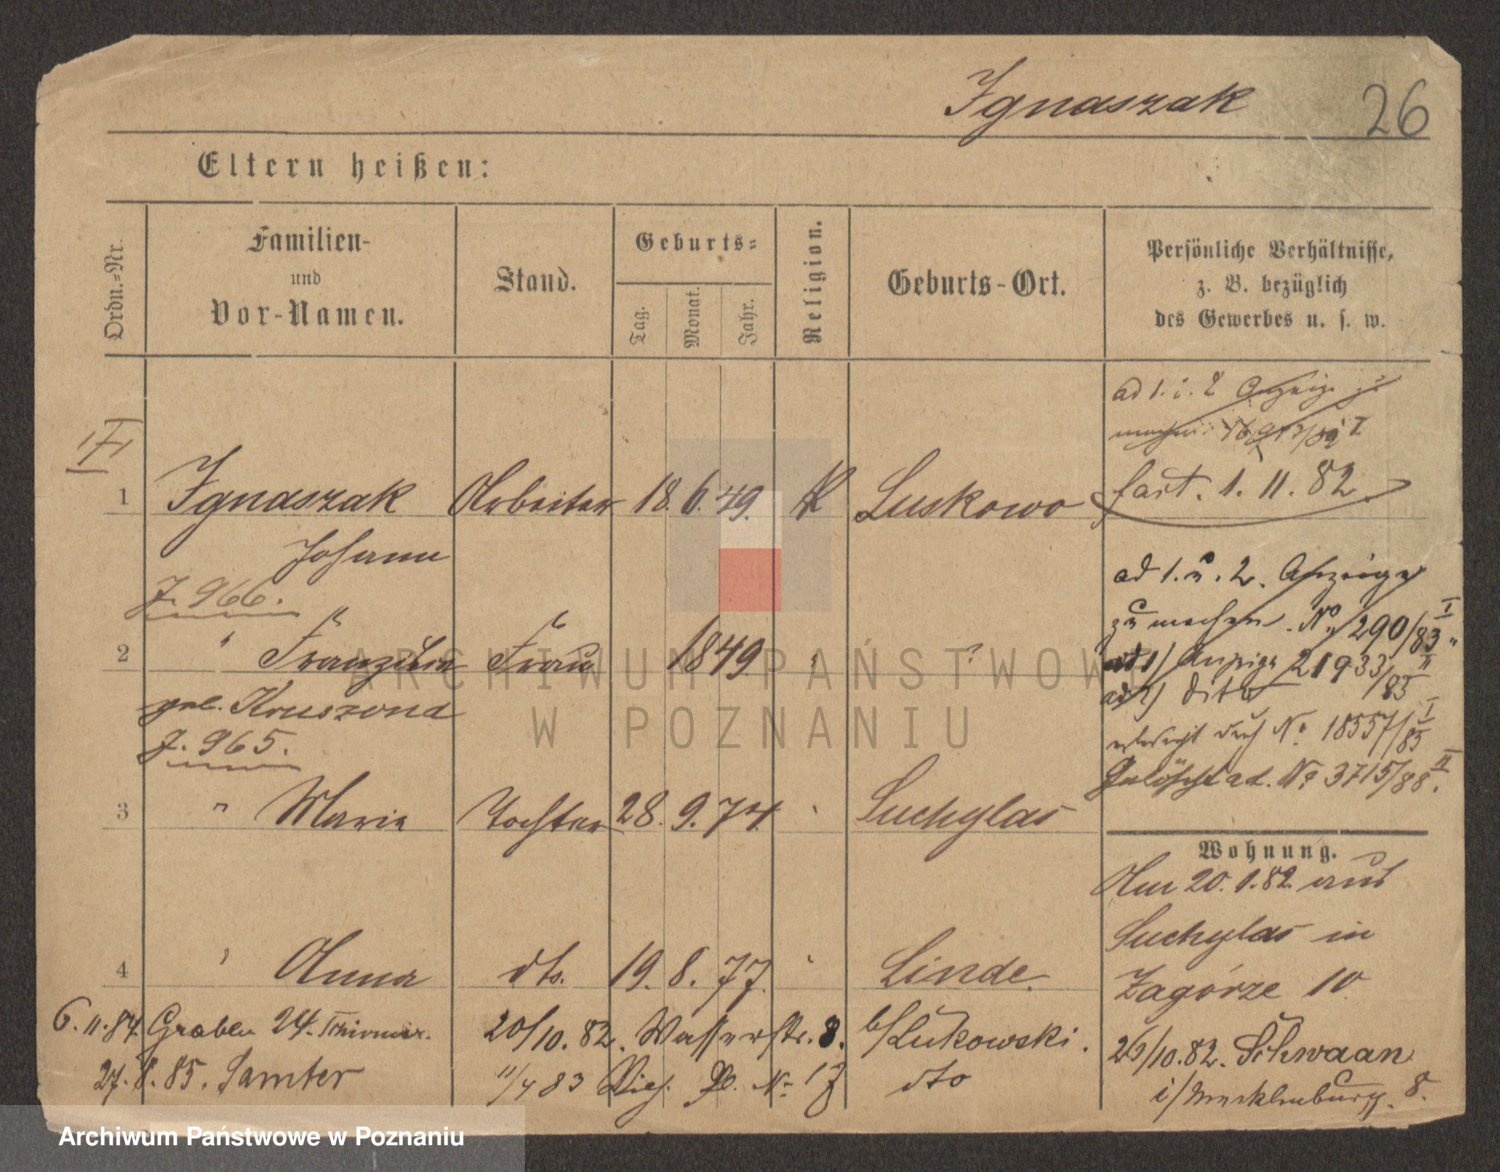 Ignaszak 26
Eltern heißen:
Ordn.-Nr.
Familien-
und
Vor-Namen.
Stand.
Geburts-
Tag.
Monat.
Jahr.
Religion.
Geburts-Ort.
Persönliche Verhältnisse,
z. B. bezüglich
des Gewerbes u. s. w.
ad 1. u. 2 Anzeige zu
machen
fact. 1. 11. 82
1 Ignaszak Arbeiter 18. 6. 49. K Luskowo
Johann
J. 966.
2 " Franziska Frau 1849 " ?
geb. Kruszona
J. 965.
ad 1. u. 2. Anzeige
zu machen. No 290/83 I
ad 1) Anzeige 21933/85 II
ad 2) dito
erledigt durch No 18557/85 I
Gelöscht ad. No 3715/88. II
3 " Marie Tochter 28. 9. 74. " Suchylas
Wohnung.
Am 20. 1. 82. aus
Suchylas in
Zagórze 10
4 " Anna dto. 19. 8. 77. " Linde.
6. 11. 84. Graben 24. 20/10. 82. Wasserstr. 8. b/Lukowski.
10. 82. Schwaan
i/Mecklenburg. 8.
27. 8. 85. Samter 11/4 83 No 17 dto
ARCHIWUM PAŃSTWOWE
W POZNANIU
Archiwum Państwowe w Poznaniu